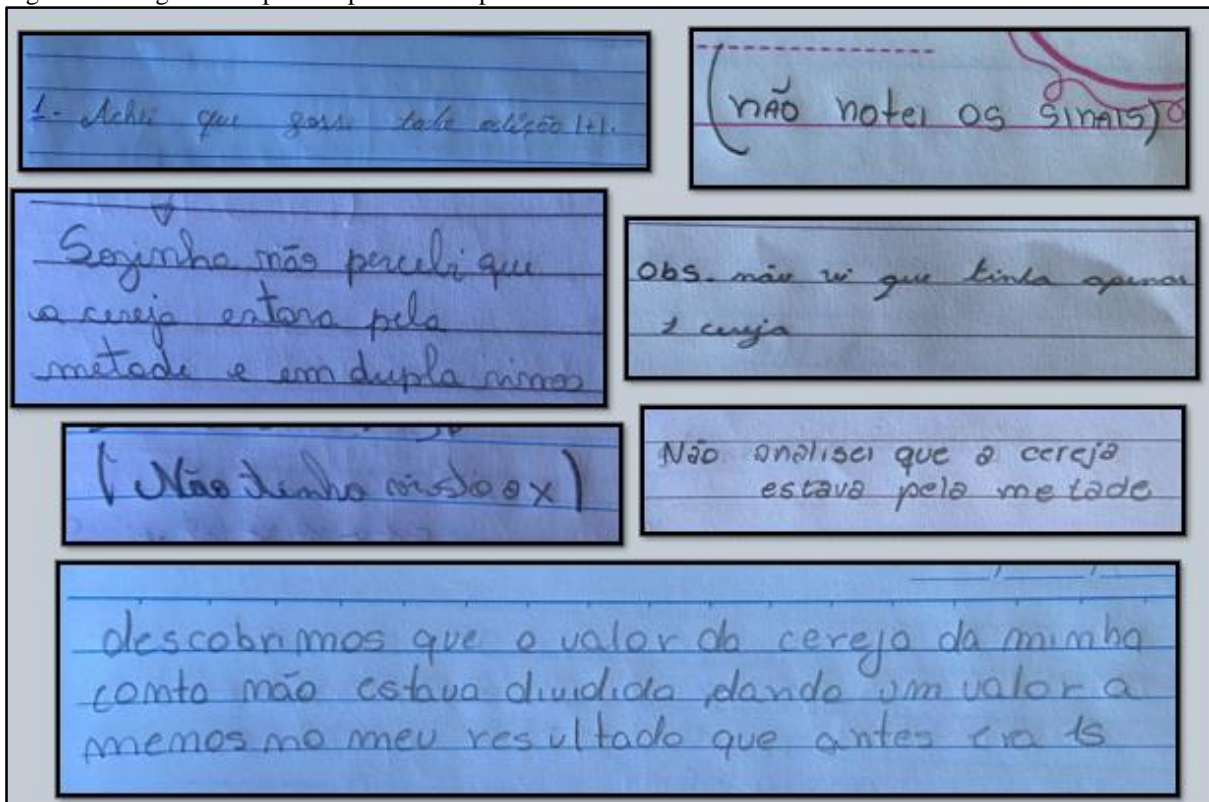 1. Achei que fosse toda adição (+).
(não notei os sinais)
Sozinha não percebi que
a cereja estava pela
metade e em dupla vimos
Obs. não vi que tinha apenas
1 cereja
(Não tinha visto o x)
Não analisei que a cereja
estava pela metade
descobrimos que o valor da cereja da minha
conta não estava dividida, dando um valor a
menos no meu resultado que antes era 15